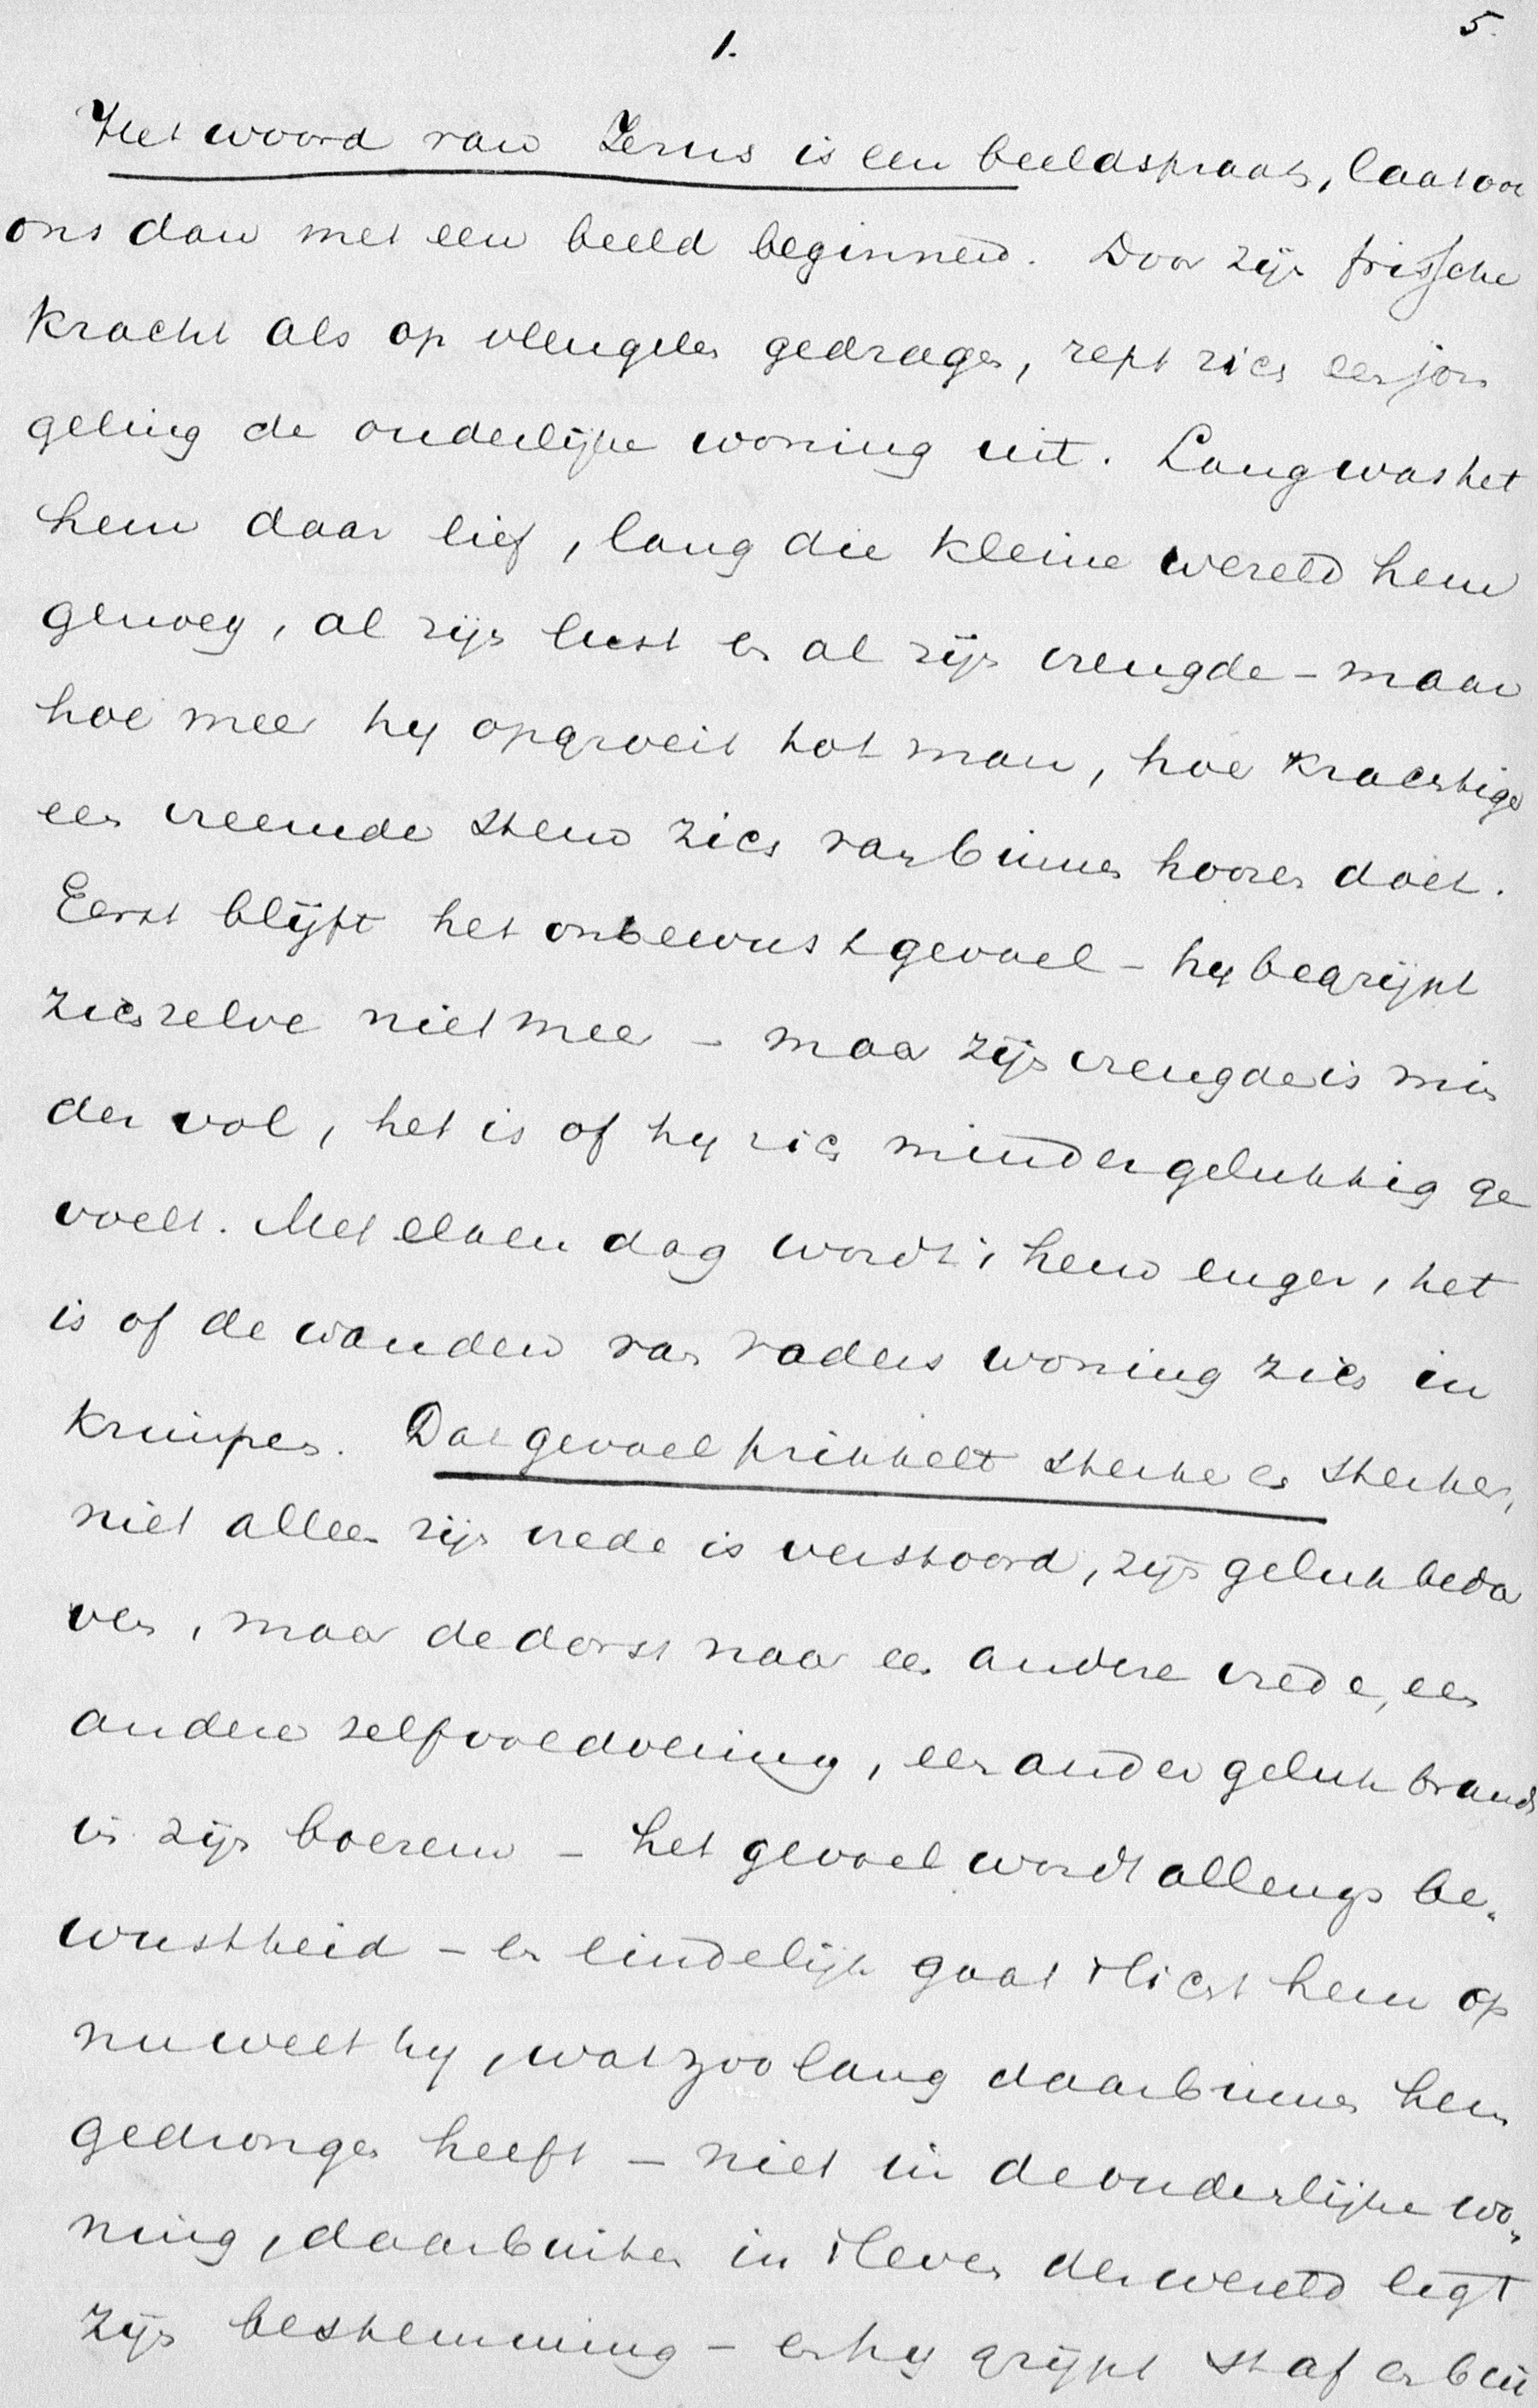 5.
1.
Het woord van Jezus is een beeldspraak, laat ook
ons dan met een beeld beginnen. Door zijn frissche
kracht als op vleugelen gedragen, rept zich een jon
geling de ouderlijke woning uit. Lang was het
hem daar lief, lang die kleine wereld hem
genoeg, al zijn lust en al zijn vreugde – maar
hoe meer hy opgroeit tot man, hoe krachtiger
een vreemde stem zich van binnen hooren doet.
Eerst blijft het onbewust gevoel – hy begrijpt
zichzelve niet meer – maar zijn vreugde is min
der vol, het is of hy zich minder gelukkig ge
voelt. Met elken dag wordt 't hem enger, het
is of de wanden van vaders woning zich in
krimpen. Dat gevoel prikkelt sterker en sterker,
niet alleen zijn vrede is verstoord, zijn geluk bedor
ven, maar de dorst naar een andere vrede, een
andere zelfvoldoening, een ander geluk brandt
in zijn boezem – het gevoel wordt allengs be-
wustheid – en eindelijk gaat 't licht hem op
nu weet hy, wat zoo lang daarbinnen hem
gedrongen heeft – niet in de ouderlijke wo-
ning, daarbuiten in 't leven der wereld ligt
zijn bestemming – en hy grijpt staf en bui